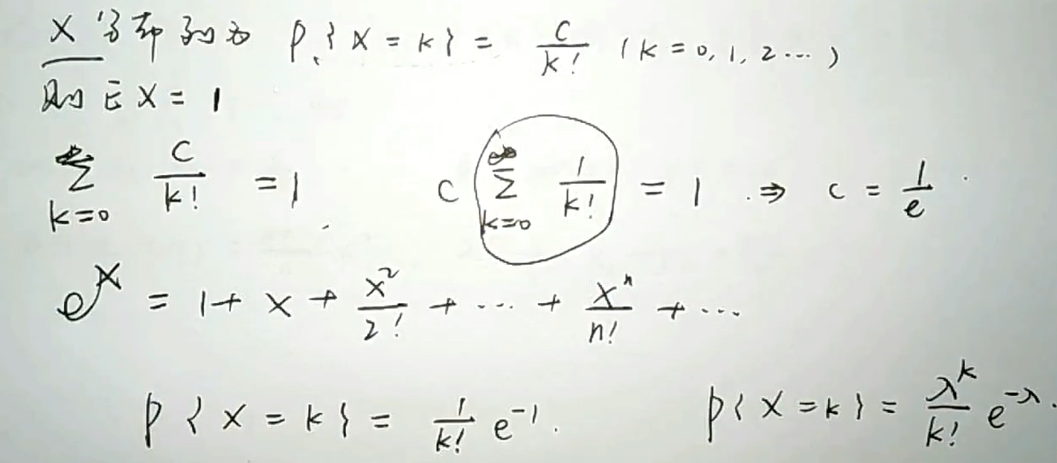 X 分布列为 P{X=k} = C/k! (k=0,1,2...)
则 EX = 1
∑_{k=0}^{∞} C/k! = 1 C ∑_{k=0}^{∞} 1/k! = 1 ⇒ C = 1/e
e^x = 1 + x + x²/2! + ... + xⁿ/n! + ...
P{X=k} = 1/k! e^{-1}. P{X=k} = λ^k/k! e^{-λ}.